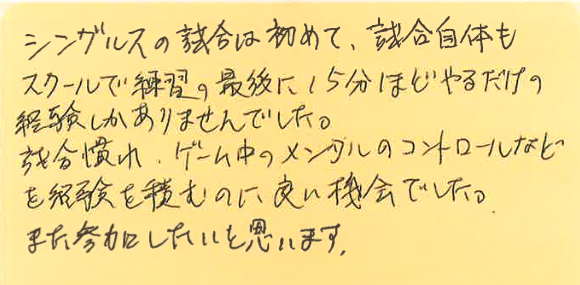 シングルスの試合は初めて、試合自体も
スクールで練習の最後に15分ほどやるだけの
経験しかありませんでした。
試合慣れ、ゲーム中のメンタルのコントロールなど
を経験を積むのに良い機会でした。
また参加したいと思います。